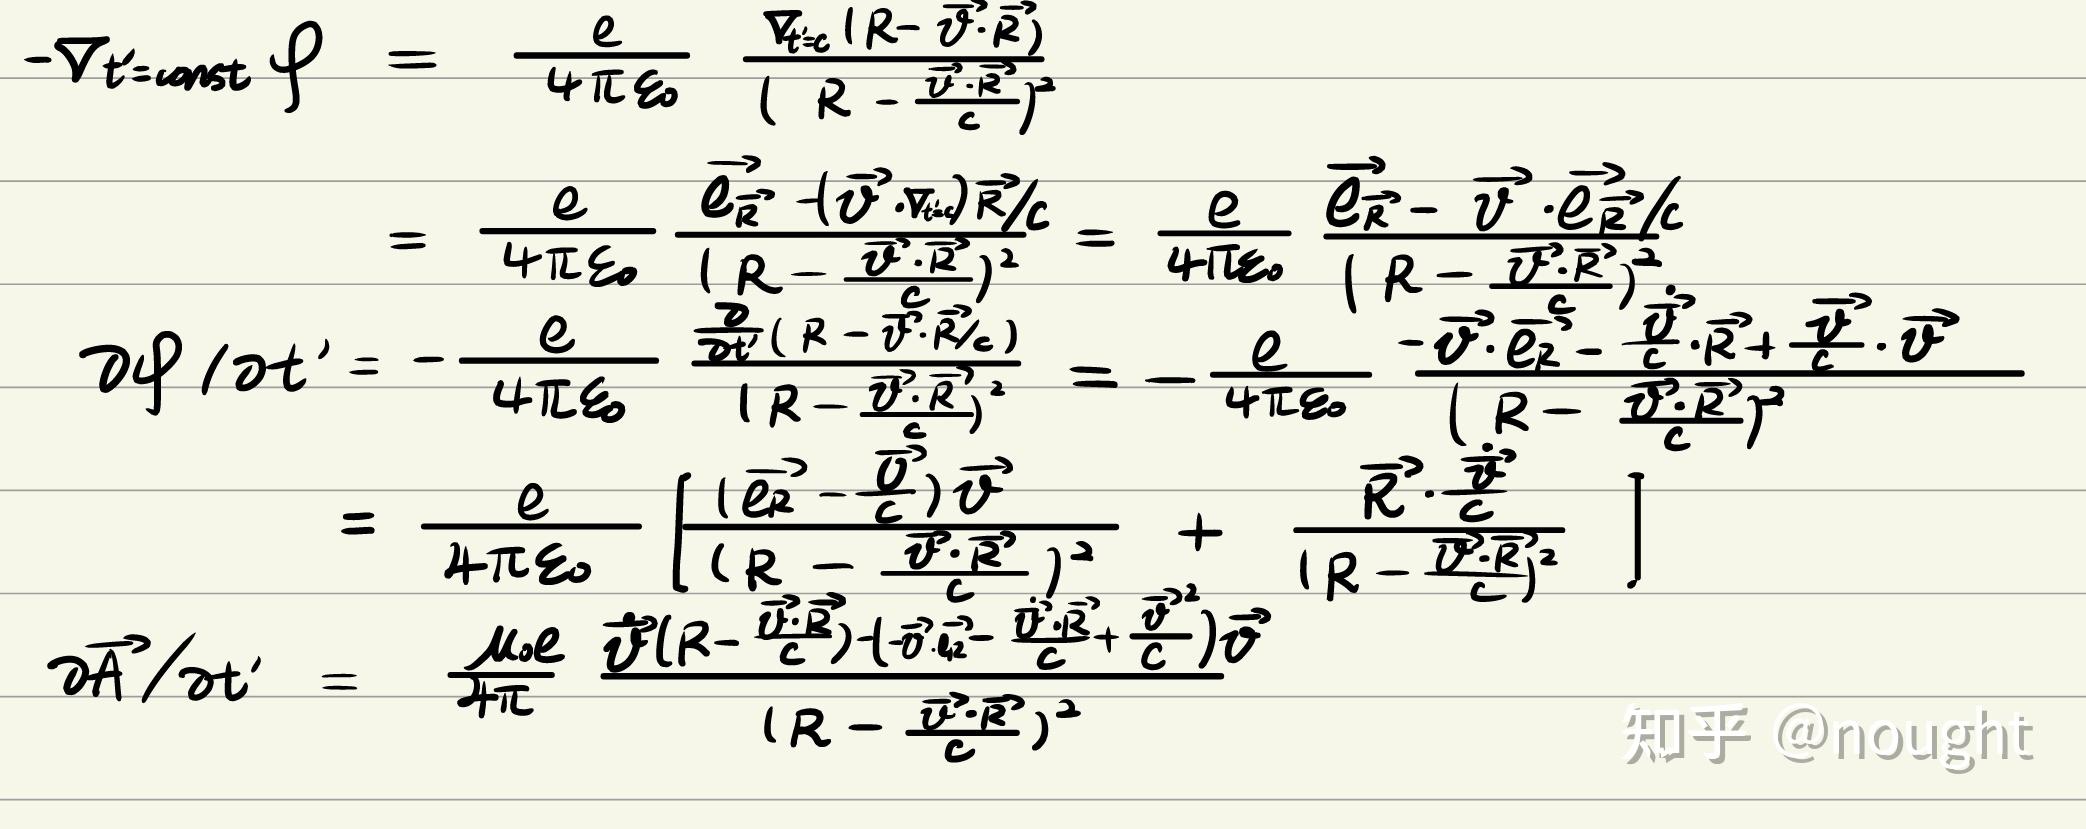 $-\nabla_{t'=const}\varphi = \frac{e}{4\pi\varepsilon_0} \frac{\nabla_{t'=c}(R-\vec{v}\cdot\vec{R})}{(R-\frac{\vec{v}\cdot\vec{R}}{c})^2}$
$= \frac{e}{4\pi\varepsilon_0} \frac{\vec{e_{\vec{R}}}-(\vec{v}\cdot\nabla_{t'=c})\vec{R}/c}{(R-\frac{\vec{v}\cdot\vec{R}}{c})^2} = \frac{e}{4\pi\varepsilon_0} \frac{\vec{e_{\vec{R}}}-\vec{v}\cdot\vec{e_{\vec{R}}}/c}{(R-\frac{\vec{v}\cdot\vec{R}}{c})^2}$
$\partial\varphi/\partial t' = -\frac{e}{4\pi\varepsilon_0} \frac{\frac{\partial}{\partial t'}(R-\vec{v}\cdot\vec{R}/c)}{(R-\frac{\vec{v}\cdot\vec{R}}{c})^2} = -\frac{e}{4\pi\varepsilon_0} \frac{-\vec{v}\cdot\vec{e_R}-\frac{\dot{\vec{v}}}{c}\cdot\vec{R}+\frac{\vec{v}}{c}\cdot\vec{v}}{(R-\frac{\vec{v}\cdot\vec{R}}{c})^2}$
$= \frac{e}{4\pi\varepsilon_0} \left[\frac{(\vec{e_R}-\frac{\vec{v}}{c})\vec{v}}{(R-\frac{\vec{v}\cdot\vec{R}}{c})^2} + \frac{\vec{R}\cdot\frac{\dot{\vec{v}}}{c}}{(R-\frac{\vec{v}\cdot\vec{R}}{c})^2}\right]$
$\partial\vec{A}/\partial t' = \frac{\mu_0 e}{4\pi} \frac{\dot{\vec{v}}(R-\frac{\vec{v}\cdot\vec{R}}{c})-(-\vec{v}\cdot\vec{e_R}-\frac{\dot{\vec{v}}\cdot\vec{R}}{c}+\frac{\vec{v}^2}{c})\vec{v}}{(R-\frac{\vec{v}\cdot\vec{R}}{c})^2}$
知乎 @nought